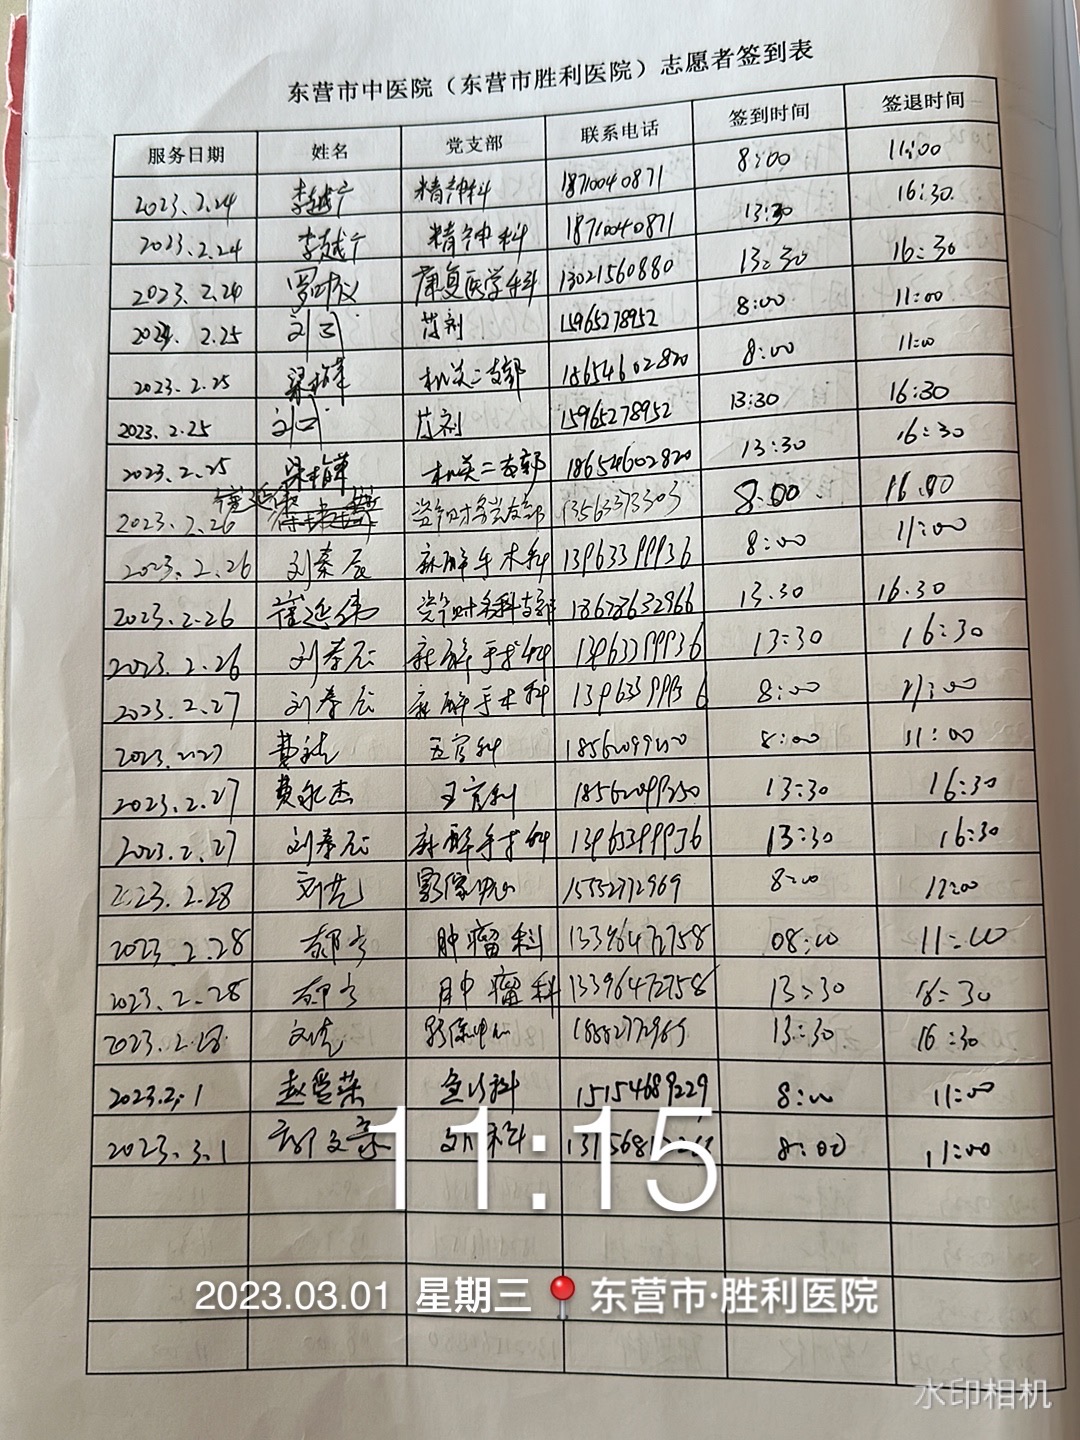 东营市中医院（东营市胜利医院）志愿者签到表
服务日期 姓名 党支部 联系电话 签到时间 签退时间
2023.2.24 李越广 精神科 18710040871 8:00 11:00
2023.2.24 李越广 精神科 18710040871 13:30 16:30
2023.2.24 康复医学科 13021560880 13:30 16:30
2.25 药剂 15965278952 8:00 11:00
2023.2.25 机关二支部 18654602820 8:00 11:00
2023.2.25 药剂 15965278952 13:30 16:30
2023.2.25 机关二支部 18654602820 13:30 16:30
崔延伟
2023.2.26 13563373303 8:00 16:00
2023.2.26 刘泰辰 麻醉手术科 13963399936 8:00 11:00
2023.2.26 崔延伟 18678632966 13.30 16.30
2023.2.26 刘泰辰 麻醉手术科 13963399936 13:30 16:30
2023.2.27 刘泰辰 麻醉手术科 13963399936 8:00 11:00
2023.2.27 五官科 8:00 11:00
2023.2.27 费永杰 五官科 18562099250 13:30 16:30
2023.2.27 刘泰辰 麻醉手术科 13963399936 13:30 16:30
2023.2.28 影像中心 15552772969 8:00 11:00
2023.2.28 肿瘤科 13396472758 08:00 11:00
2023.2.28 肿瘤科 13396472758 13:30 16:30
2023.2.28 影像中心 13:30 16:30
2023.2.1 赵爱荣 急诊科 15154689229 8:00 11:00
2023.3.1 外科 8:00 11:00
11:15
2023.03.01 星期三 东营市·胜利医院
水印相机